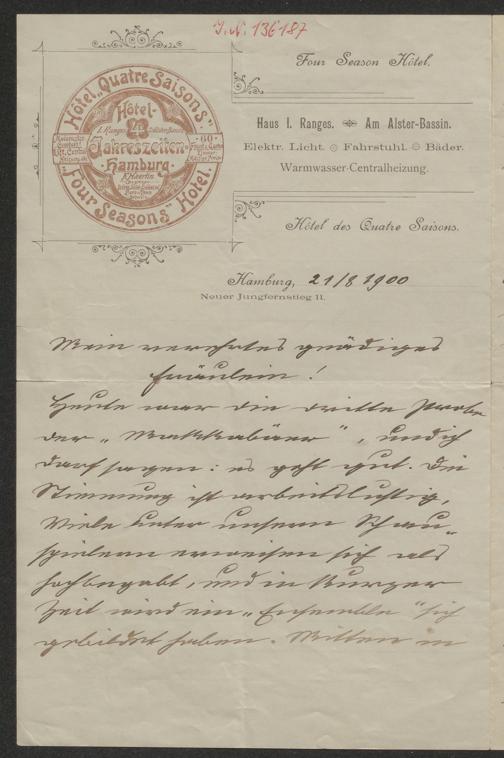 J.N. 136187
Hôtel „Quatre Saisons".
Hôtel-
I. Ranges
Jahreszeiten
Hamburg
"Four Seasons Hotel.
Four Season Hôtel.
Haus I. Ranges. Am Alster-Bassin.
Elektr. Licht. Fahrstuhl. Bäder.
Warmwasser-Centralheizung.
Hôtel des Quatre Saisons.
Hamburg, 21/8 1900
Neuer Jungfernstieg 11.
Mein verehrtes gnädiges
Fräulein!
Heute war die dritte Probe
der „Makkabäer", und ich
darf sagen: es geht gut. Die
Stimmung ist arbeitslustig,
Viele unter unsern Schau-
spielern erweisen sich als
hochbegabt, und in kurzer
Zeit wird ein „Ensemble" sich
gebildet haben. Mitten in